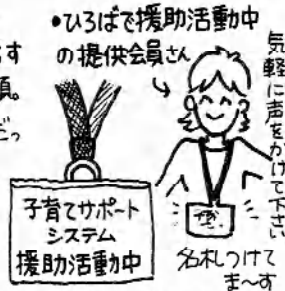 •ひろばで援助活動中
の提供会員さん
気軽に声をかけて下さい
子育てサポート
システム
援助活動中
名札つけて
ま〜す